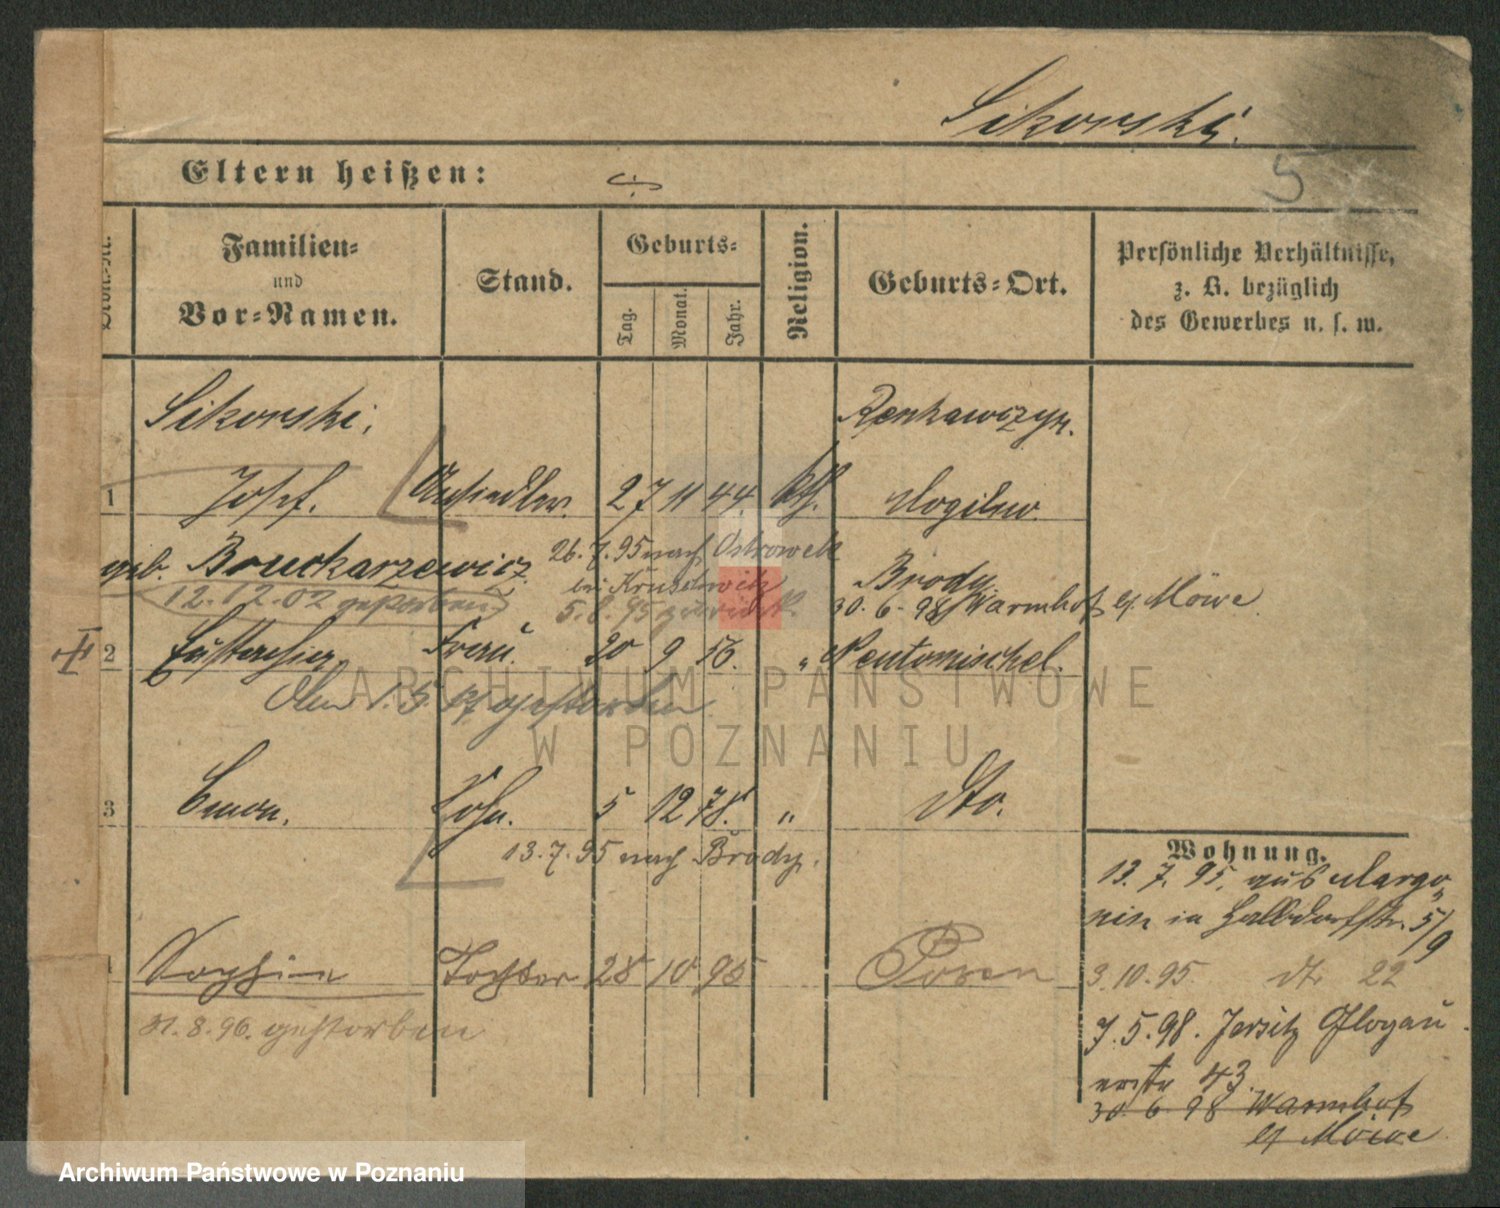 Sikorski.
5
Eltern heißen:
Familien-
und
Vor-Namen.
Stand.
Geburts-
Tag.
Monat.
Jahr.
Religion.
Geburts-Ort.
Persönliche Verhältnisse,
z. B. bezüglich
des Gewerbes u. s. w.
Sikorski,
1 Josef. Ansiedler. 27 11 44. kth. Mogilno.
geb.
26. 7. 95 nach Ostrowek
bei Kruschwitz
5. 8. 95 zurück.
12.12.02 gestorben
Brody.
30. 6. 98 Warmhof b/ Möwe
2 Frau. 20 9 56. " Neutomischel.
Den 1. 5. gestorben
3 Sohn. 5 12 78. " dto.
13. 7. 95 nach Brody.
Sophie Tochter 28 10 95 Posen
31. 8. 96. gestorben
Wohnung.
13. 7. 95. aus Margo-
nin in Halbdorfstr. 5/
9
3. 10. 95. dt 22
7. 5. 98. Jersitz Glogau
erstr 43.
30. 6 98 Warmhof
b/ Möwe
ARCHIWUM PAŃSTWOWE
W POZNANIU
Archiwum Państwowe w Poznaniu